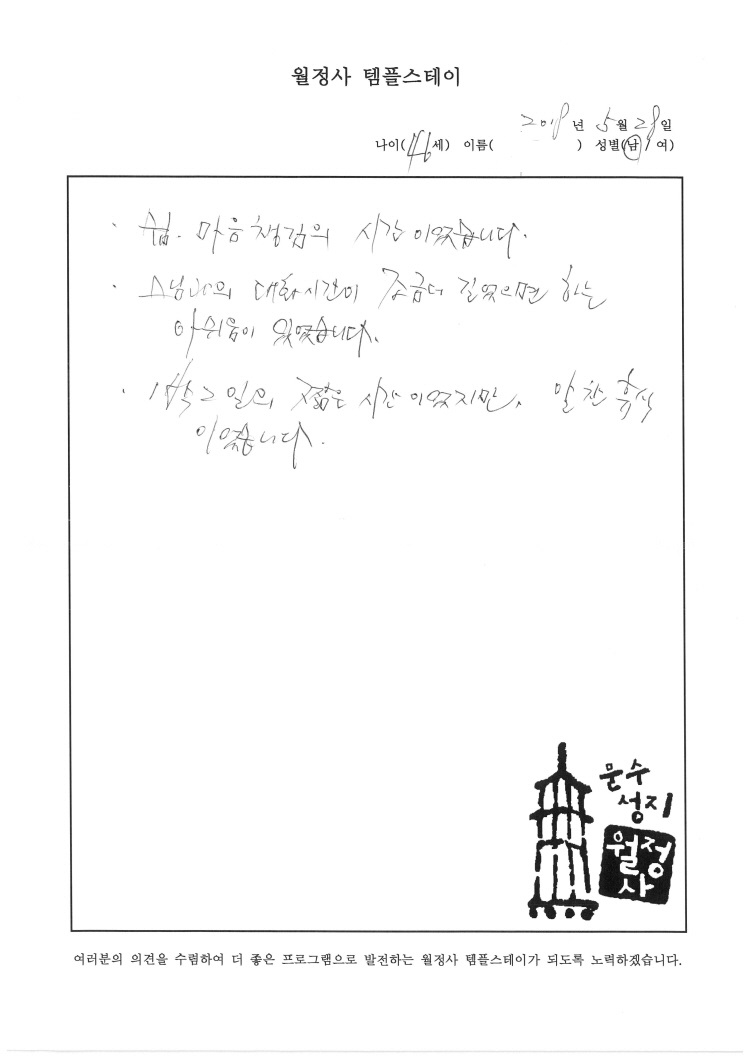 월정사 템플스테이
2018년 5월 28일
나이(46세) 이름( ) 성별(남/여)
· 쉼. 마음챙김의 시간이었습니다.
· 스님과의 대화시간이 조금더 길었으면 하는
아쉬움이 있었습니다.
· 1박2일의 짧은 시간이었지만, 알찬 휴식
이었습니다.
문수
성지
월정
사
여러분의 의견을 수렴하여 더 좋은 프로그램으로 발전하는 월정사 템플스테이가 되도록 노력하겠습니다.